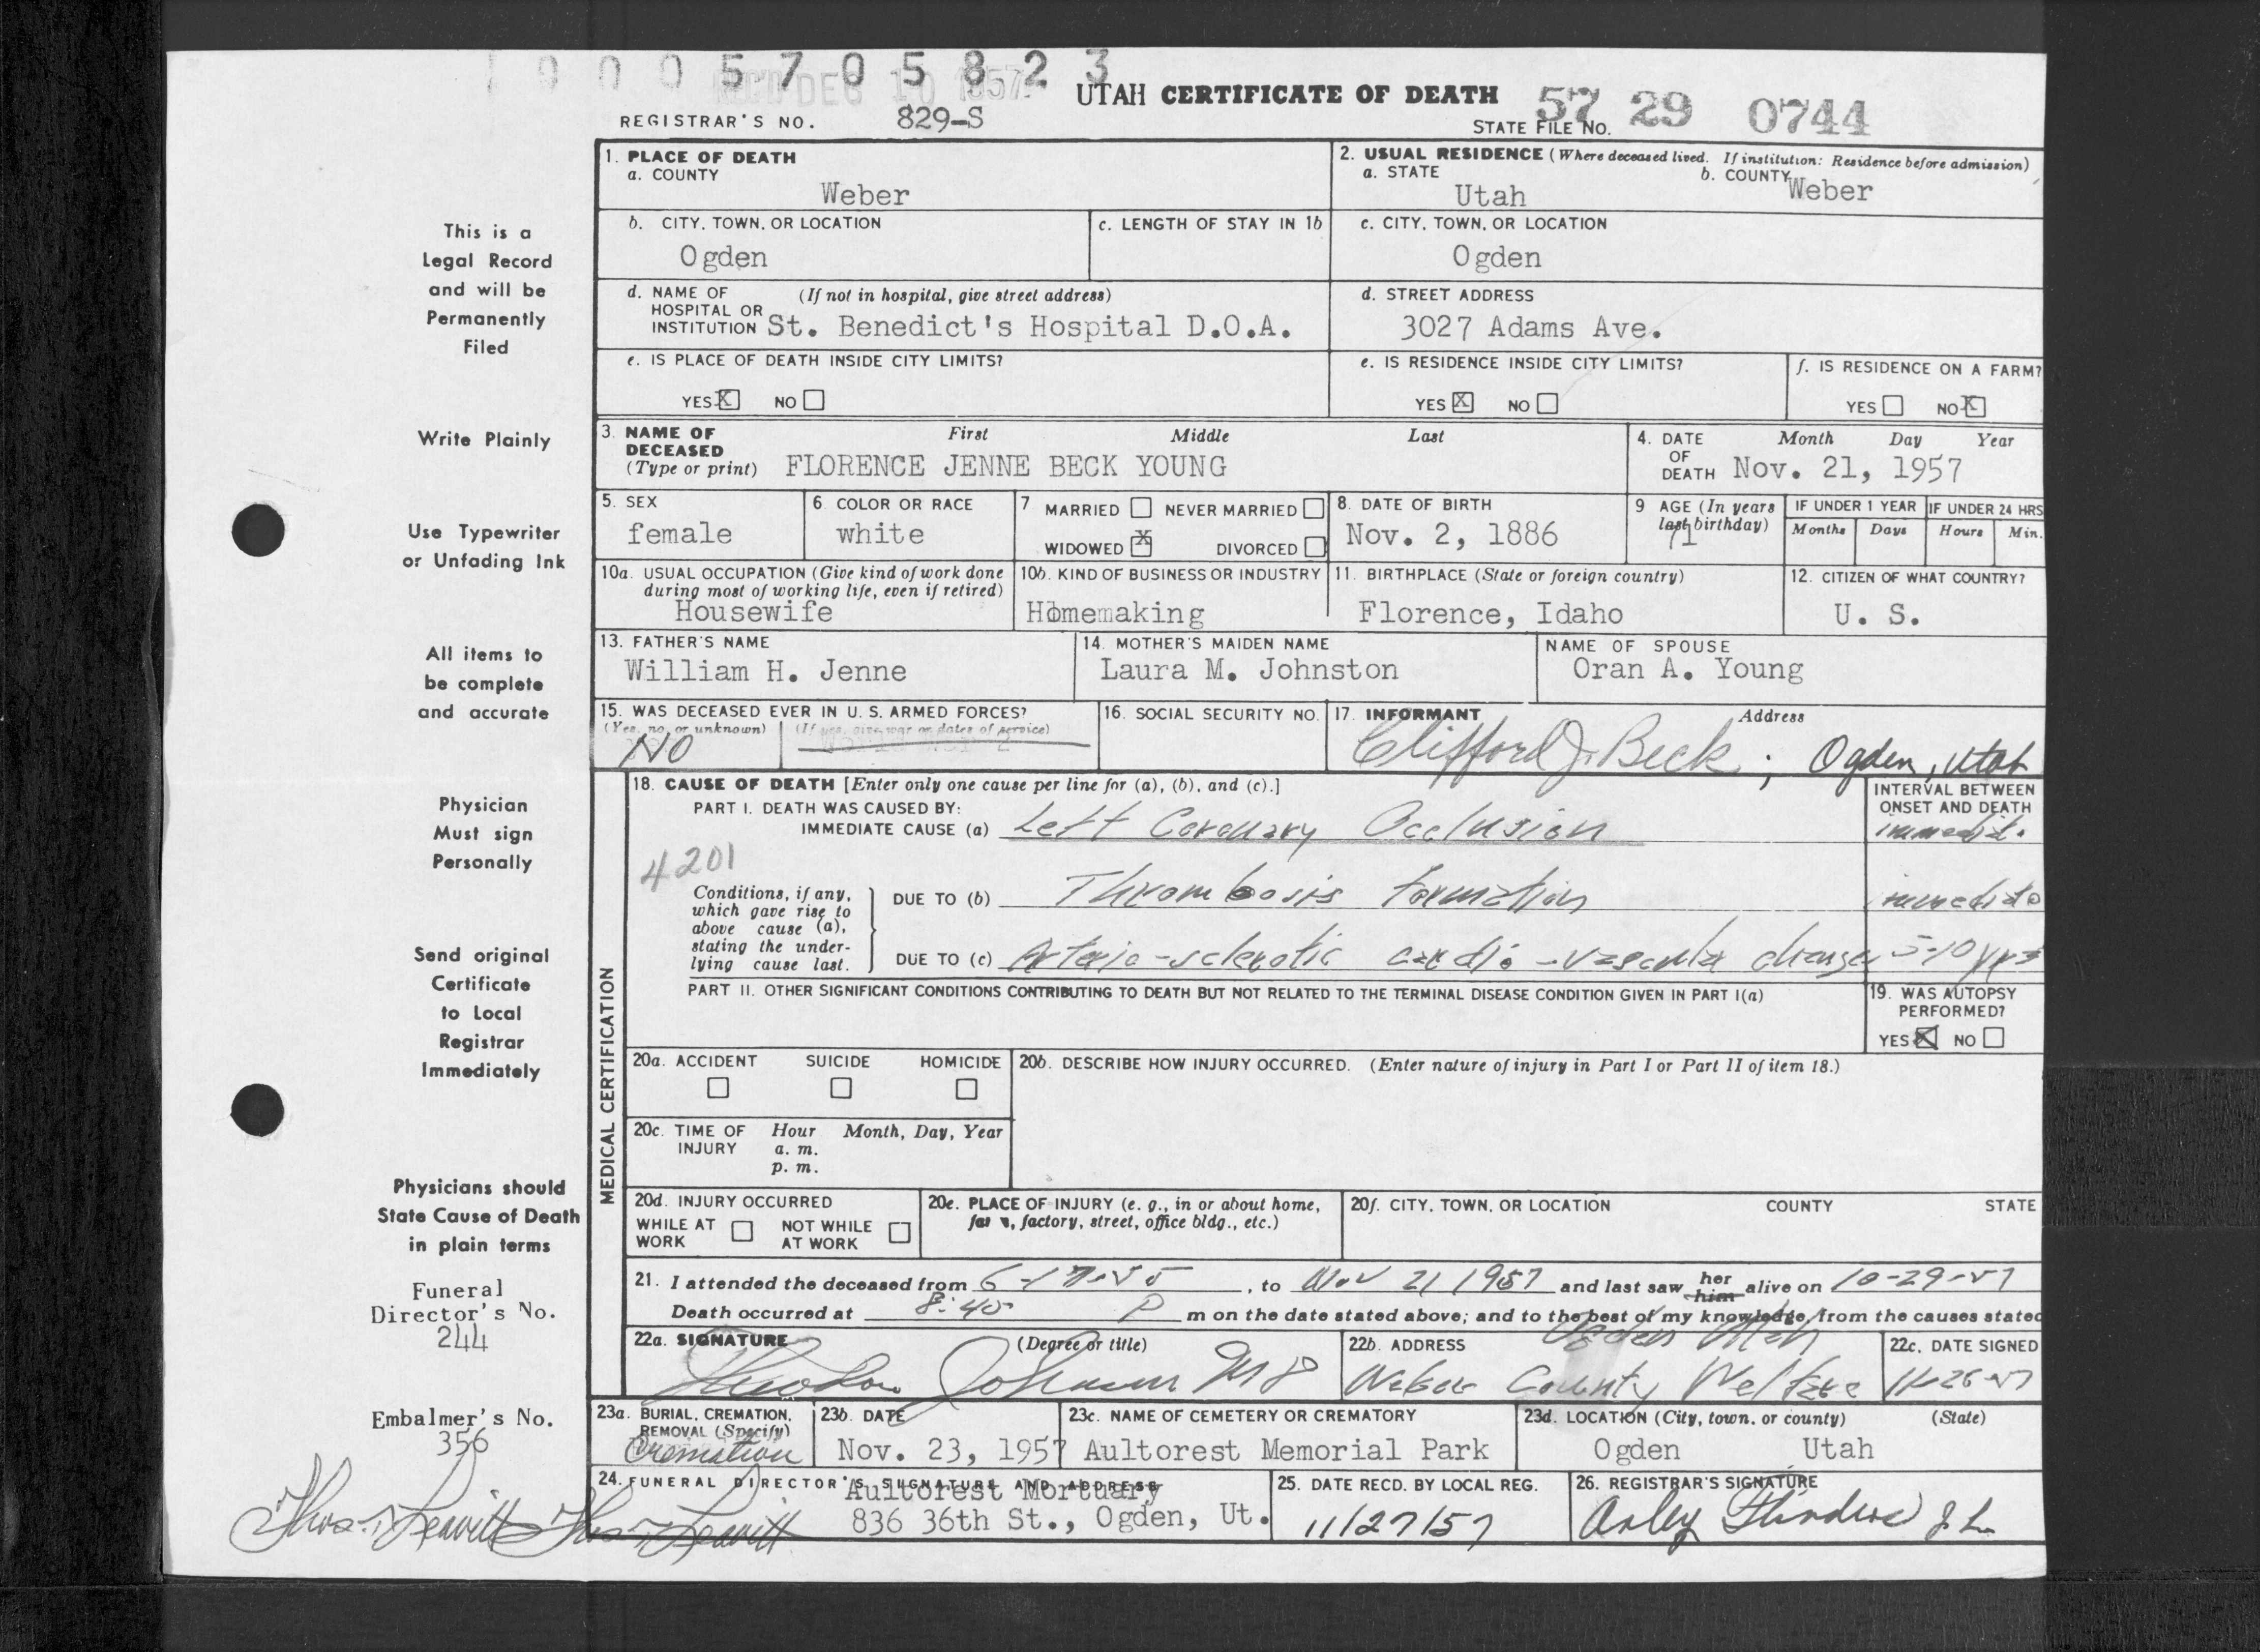 19005705823
REC'D DEC 10 1957
UTAH CERTIFICATE OF DEATH
REGISTRAR'S NO. 829-S
STATE FILE NO. 57 29 0744
This is a
Legal Record
and will be
Permanently
Filed
Write Plainly
Use Typewriter
or Unfading Ink
All items to
be complete
and accurate
Physician
Must sign
Personally
Send original
Certificate
to Local
Registrar
Immediately
Physicians should
State Cause of Death
in plain terms
Funeral
Director's No.
244
Embalmer's No.
356
1. PLACE OF DEATH
a. COUNTY
Weber
2. USUAL RESIDENCE (Where deceased lived. If institution: Residence before admission)
a. STATE
Utah
b. COUNTY
Weber
b. CITY, TOWN, OR LOCATION
Ogden
c. LENGTH OF STAY IN 1b
c. CITY, TOWN, OR LOCATION
Ogden
d. NAME OF HOSPITAL OR INSTITUTION
(If not in hospital, give street address)
St. Benedict's Hospital D.O.A.
d. STREET ADDRESS
3027 Adams Ave.
e. IS PLACE OF DEATH INSIDE CITY LIMITS?
YES X NO
e. IS RESIDENCE INSIDE CITY LIMITS?
YES X NO
f. IS RESIDENCE ON A FARM?
YES NO X
3. NAME OF DECEASED
(Type or print)
First Middle Last
FLORENCE JENNE BECK YOUNG
4. DATE OF DEATH
Month Day Year
Nov. 21, 1957
5. SEX
female
6 COLOR OR RACE
white
7 MARRIED NEVER MARRIED
WIDOWED X DIVORCED
8. DATE OF BIRTH
Nov. 2, 1886
9 AGE (In years last birthday)
71
IF UNDER 1 YEAR
Months Days
IF UNDER 24 HRS
Hours Min.
10a. USUAL OCCUPATION (Give kind of work done
during most of working life, even if retired)
Housewife
10b. KIND OF BUSINESS OR INDUSTRY
Homemaking
11. BIRTHPLACE (State or foreign country)
Florence, Idaho
12. CITIZEN OF WHAT COUNTRY?
U. S.
13. FATHER'S NAME
William H. Jenne
14. MOTHER'S MAIDEN NAME
Laura M. Johnston
NAME OF SPOUSE
Oran A. Young
15. WAS DECEASED EVER IN U. S. ARMED FORCES?
(Yes, no, or unknown) (If yes, give war or dates of service)
NO
16. SOCIAL SECURITY NO.
17. INFORMANT Address
Clifford J. Beck; Ogden, Utah
MEDICAL CERTIFICATION
18. CAUSE OF DEATH [Enter only one cause per line for (a), (b), and (c).]
INTERVAL BETWEEN
ONSET AND DEATH
PART I. DEATH WAS CAUSED BY:
IMMEDIATE CAUSE (a) Left Coronary Occlusion
4201
Conditions, if any,
which gave rise to
above cause (a),
stating the under-
lying cause last.
DUE TO (b) Thrombosis formation immediate
DUE TO (c) Arterio-sclerotic cardio-vascular changes 5-10 yrs
PART II. OTHER SIGNIFICANT CONDITIONS CONTRIBUTING TO DEATH BUT NOT RELATED TO THE TERMINAL DISEASE CONDITION GIVEN IN PART I(a)
19. WAS AUTOPSY
PERFORMED?
YES X NO
20a. ACCIDENT SUICIDE HOMICIDE
20b. DESCRIBE HOW INJURY OCCURRED. (Enter nature of injury in Part I or Part II of item 18.)
20c. TIME OF INJURY
Hour Month, Day, Year
a. m.
p. m.
20d. INJURY OCCURRED
WHILE AT WORK NOT WHILE AT WORK
20e. PLACE OF INJURY (e. g., in or about home,
farm, factory, street, office bldg., etc.)
20f. CITY, TOWN, OR LOCATION COUNTY STATE
21. I attended the deceased from 6-17-55, to Nov 21 1957 and last saw her him alive on 10-29-57
Death occurred at 8:40 P m on the date stated above; and to the best of my knowledge, from the causes stated
22a. SIGNATURE (Degree or title)
Theodore Johnson MD
22b. ADDRESS
Ogden Utah
Weber County Welfare
22c. DATE SIGNED
11-26-57
23a. BURIAL, CREMATION,
REMOVAL (Specify)
Cremation
23b. DATE
Nov. 23, 1957
23c. NAME OF CEMETERY OR CREMATORY
Aultorest Memorial Park
23d. LOCATION (City, town, or county) (State)
Ogden Utah
24. FUNERAL DIRECTOR'S SIGNATURE AND ADDRESS
Aultorest Mortuary
836 36th St., Ogden, Ut.
Thos. Leavitt Thos. Leavitt
25. DATE RECD. BY LOCAL REG.
11/27/57
26. REGISTRAR'S SIGNATURE
Arley Flinders